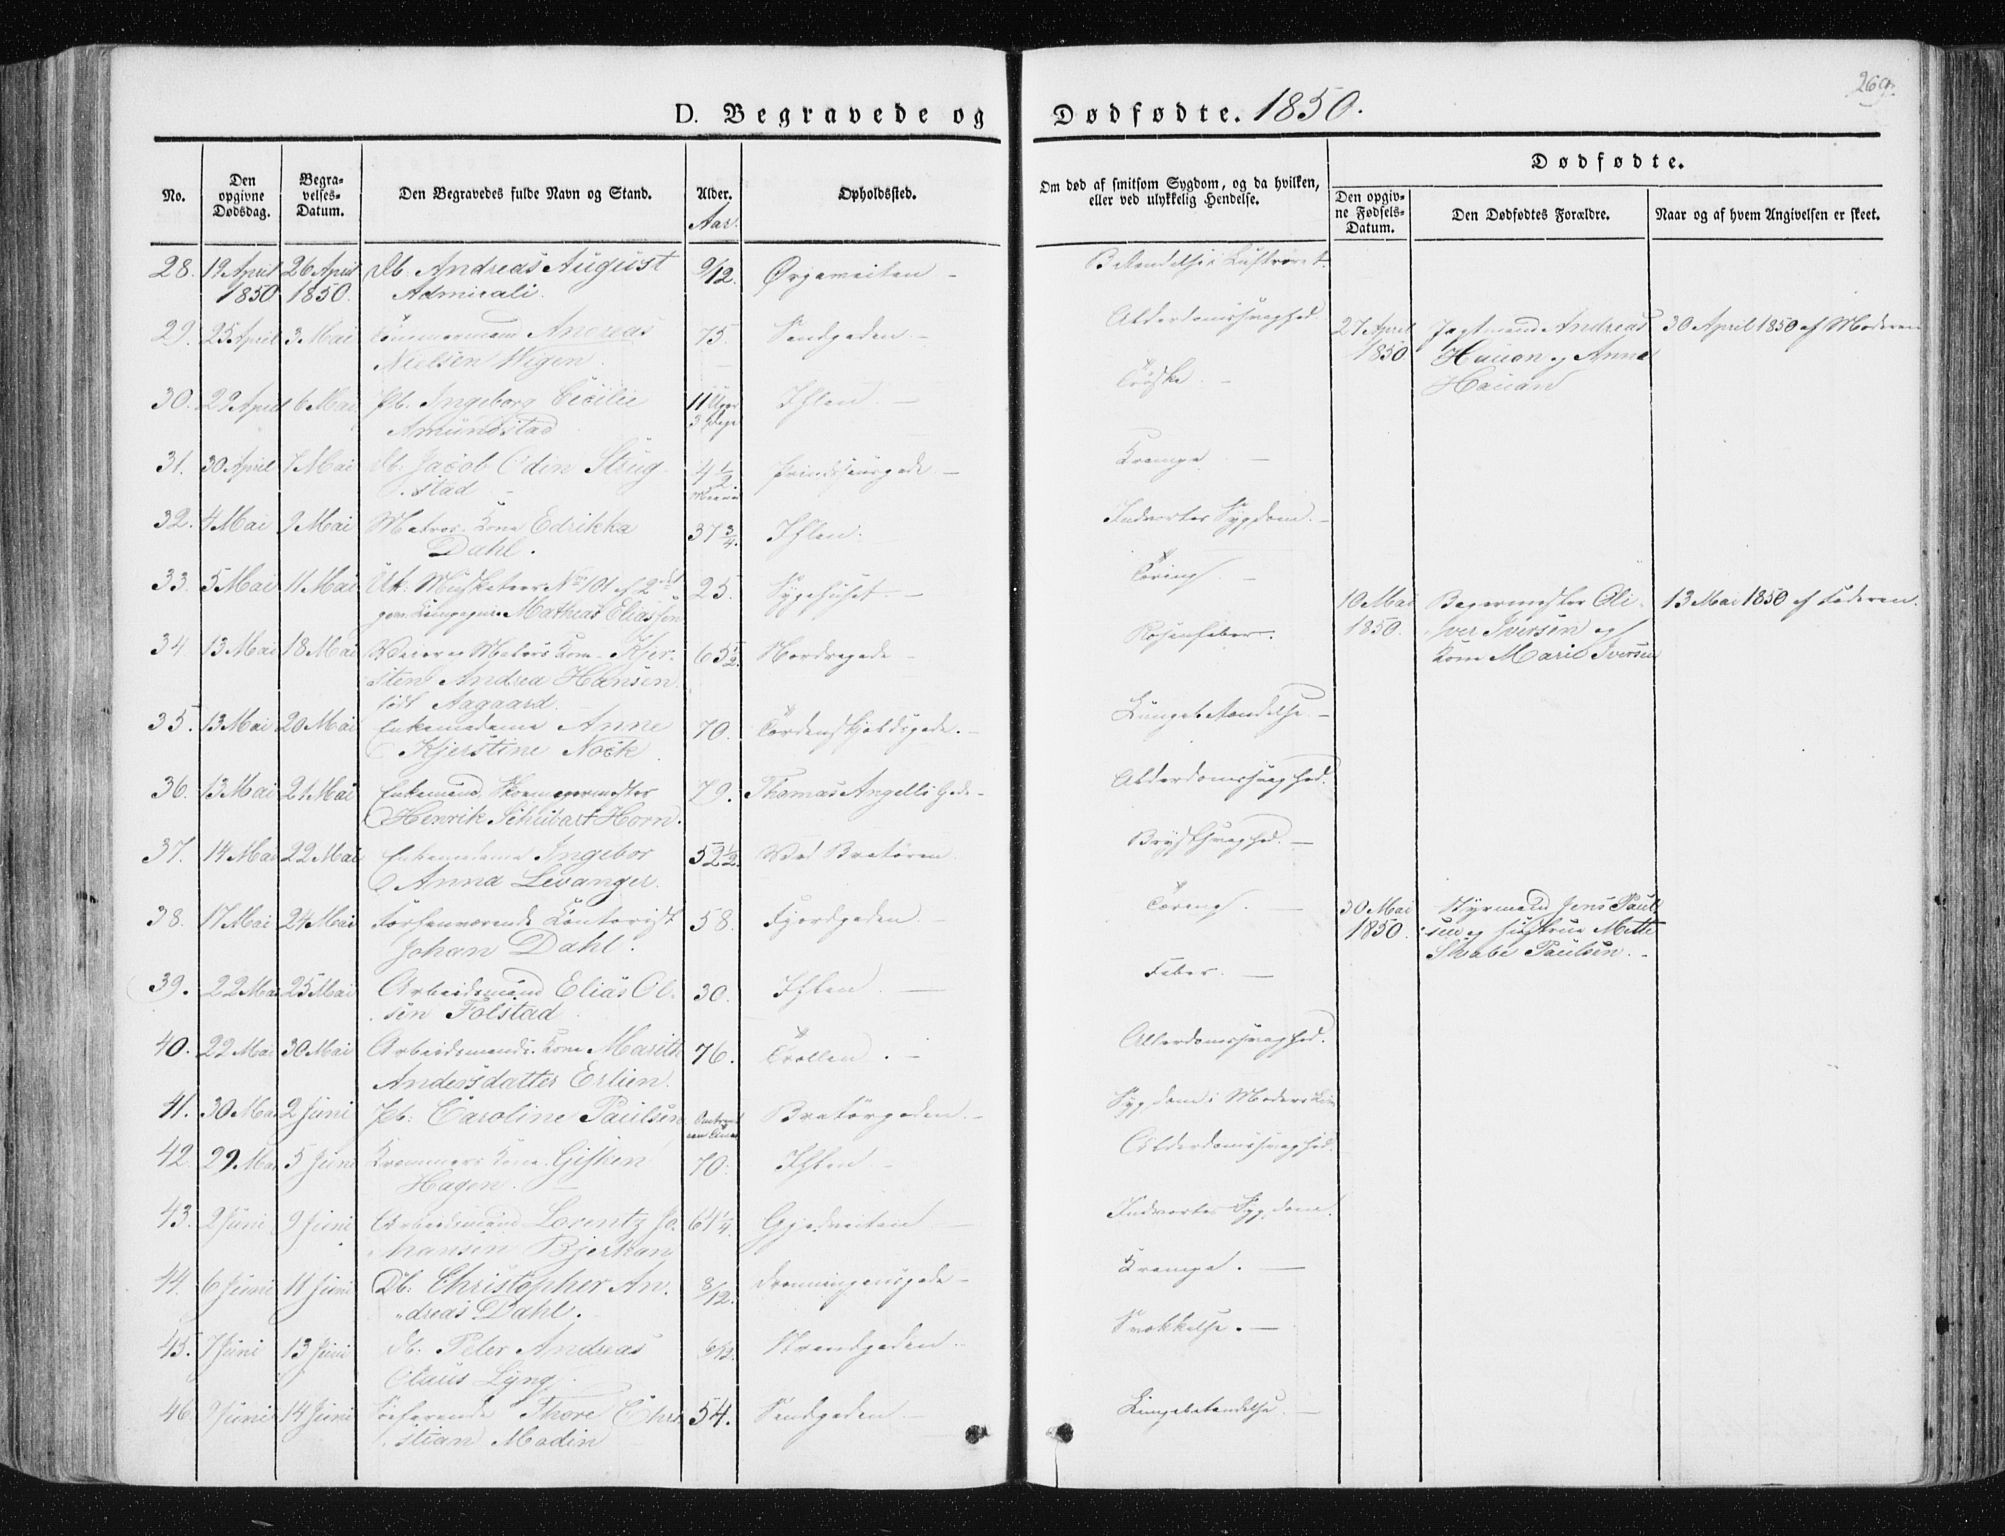 269.
D. Begravede og Dødfødte. 1850.
No.
Den opgivne Dødsdag.
Begravelses-Datum.
Den Begravedes fulde Navn og Stand.
Alder.
Aar.
Opholdssted.
Om død af smitsom Sygdom, og da hvilken, eller ved ulykkelig Hendelse.
Dødfødte.
Den opgivne Fødsels-Datum.
Den Dødfødtes Forældre.
Naar og af hvem Angivelsen er skeet.
28. 19 April 26 April Db. Andreas August 9/12. Ørjaveiten - Betændelse i Luftrøret.
1850 1850. Admirali.
29. 25 April 3 Mai Tömmermand Andreas 75. Sandgaden - Alderdomssvaghed
Nielsen Wigen.
27 April Jagtmand Andreas 30 April 1850 af Moderen
1850 Hauan og Anne
Hauan
30. 29 April 6 Mai Pb. Ingeborg Cicilie 11 Uger Ihlen. - Tröske. -
Amundstad 3 Dage
31. 30 April 7 Mai Db. Jacob Odin Strug 4 1/2 Prindsensgade - Krampe -
stad
32. 4 Mai 9 Mai Matros Kone Edrikka 37 3/4. Ihlen. Indvortes Sygdom. -
Dahl.
33. 5 Mai 11 Mai Musketeer No 101 af 2det 25. Sygehuset. - Tæring -
Mathias Eliassen
10 Mai Bagermester Oli- 13 Mai 1850 af Faderen.
1850. ver Iversen og
Kone Marie Iversen
34 13 Mai 18 Mai Matros Kone Kjer- 65 1/2. Nordregade - Rosenfeber.
stens Andrea Hansen
född Aagaard.
35. 13 Mai 20 Mai Enkemadame Anne 70. Tördenskjoldsgade. - Lungebetændelse -
Kjerstine Nock
36. 13 Mai 21 Mai Enkemand Skomagermester 79. Thomas Angells Gade - Alderdomssvaghed.
Henrik Schübart Horn.
37. 14 Mai 22 Mai Enkemadame Ingebor 52 1/2. Ved Bratören Brystsvaghed. -
Anna Levanger.
38. 17 Mai 24 Mai Forhenværende Contorist 58. Fjordgaden Tæring. -
Johan Dahl.
30 Mai Styrmand Jens Paul-
1850. sen og Hustrue Mette
Paulsen.
39. 22 Mai 25 Mai Arbeidsmand Elias Ol- 30. Ihlen - Feber. -
sen Folstad
40. 22 Mai 30 Mai Arbeidsmands Kone Marith 76. Trollen. - Alderdomssvaghed.
Andersdatter Erlien.
41. 30 Mai 2 Juni Pb: Caroline Paulsen Bratörgaden. - Sygdom i Moders Liv
42. 29 Mai 5 Juni Kræmmers Kone Gisken 70. Ihlen - Alderdomssvaghed.
Hagen. -
43. 2 Juni 9 Juni Arbeidsmand Lorentz Jo- 64 1/4. Gjedveiten - Indvortes Sygdom.
hansen Bjerkan
44. 6 Juni 11 Juni Db: Christopher An- 8/12. Dronningensgade - Krampe. -
dreas Dahl.
45. 7 Juni 13 Juni Db: Peter Andreas Strandgaden. Svækkelse. -
Claus Lyng.
46. 9 Juni 14 Juni Söefarende Thore Chri 54. Sandgaden - Lungebetændelse. -
stian Modin